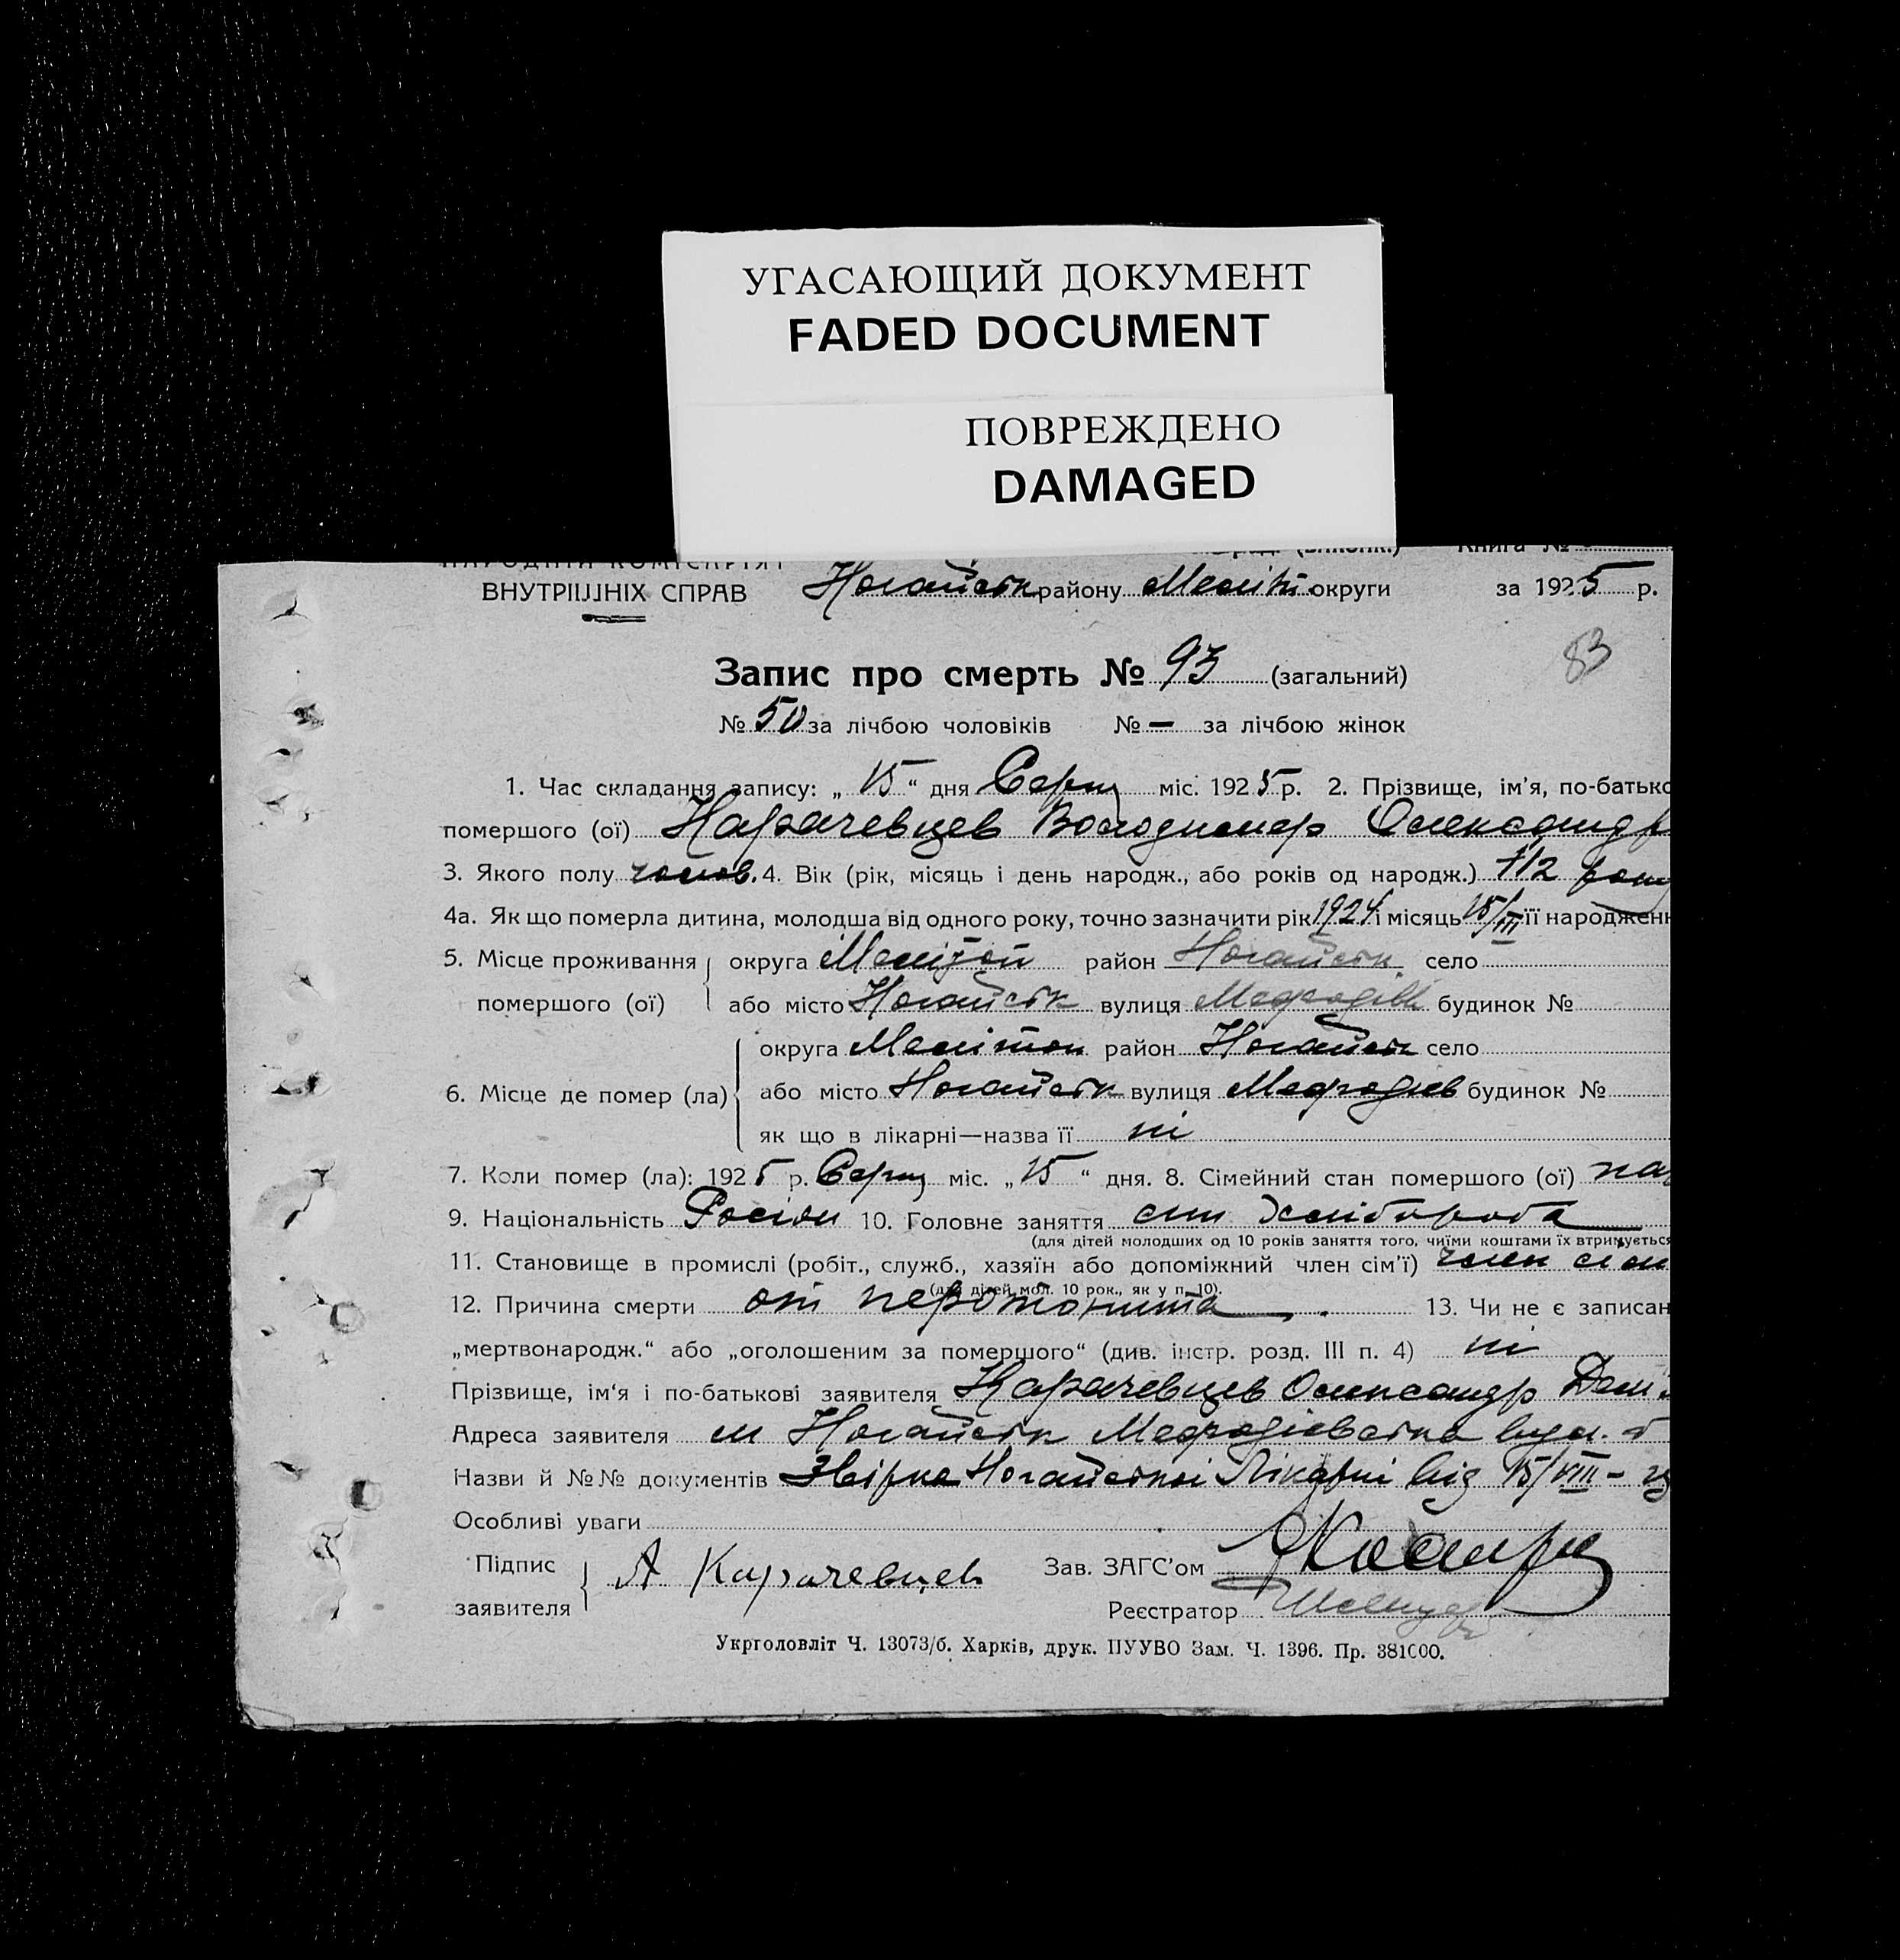 УГАСАЮЩИЙ ДОКУМЕНТ
FADED DOCUMENT
ПОВРЕЖДЕНО
DAMAGED
Книга №
ВНУТРІШНІХ СПРАВ Ногайськ району Меліт. округи за 1925 р.
83
Запис про смерть № 93 (загальний)
№ 50 за лічбою чоловіків № — за лічбою жінок
1. Час складання запису: „ 15 “ дня Серп міс. 1925 р. 2. Прізвище, ім'я, по-батько
помершого (ої) Карачевцев Володимир Олександр
3. Якого полу чолов. 4. Вік (рік, місяць і день народж., або років од народж.) 1 1/2 року
4а. Як що померла дитина, молодша від одного року, точно зазначити рік 1924 і місяць 15/III її народжен
5. Місце проживання округа Меліtoп район Ногайськ село
помершого (ої) або місто Ногайськ вулиця будинок №
округа Мелітоп район Ногайськ село
6. Місце де помер (ла) або місто Ногайськ вулиця Мефодіев будинок №
як що в лікарні—назва її ні
7. Коли помер (ла): 1925 р. Серп міс. „ 15 “ дня. 8. Сімейний стан помершого (ої)
9. Національність Росіян 10. Головне заняття син Хлібороба
(для дітей молодших од 10 років заняття того, чиїми коштами їх втримується
11. Становище в промислі (робіт., служб., хазяїн або допоміжний член сім'ї) член сім
(для дітей мол. 10 рок., як у п. 10).
12. Причина смерти от перотонита 13. Чи не є записан
„мертвонародж.“ або „оголошеним за помершого“ (див. інстр. розд. III п. 4) ні
Прізвище, ім'я і по-батькові заявителя Карачевцев Олександр
Адреса заявителя м Ногайськ Мефодіевська вул.
Назви й №№ документів Ногайської Лікарні від 15/VIII –
Особливі уваги
Підпис заявителя А Карачевцев Зав. ЗАГС'ом
Реєстратор
Укрголовліт Ч. 13073/б. Харків, друк. ПУУВО Зам. Ч. 1396. Пр. 381000.